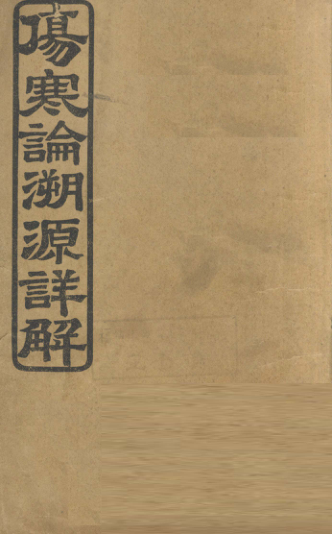 傷寒論溯源詳解